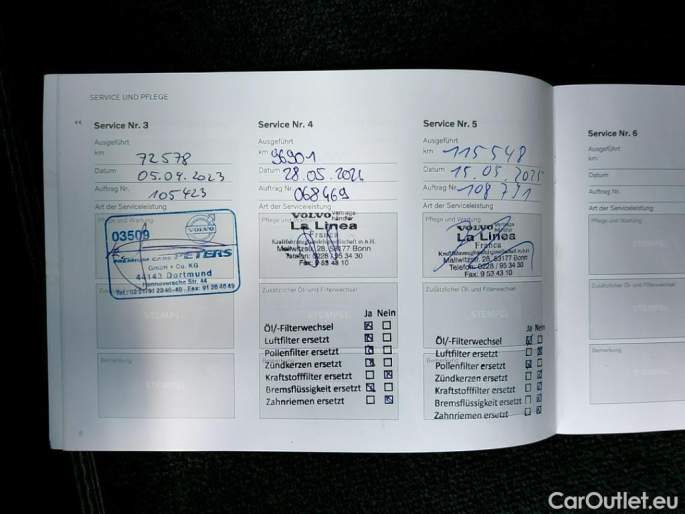 SERVICE UND PFLEGE
Service Nr. 3
Ausgeführt
km 72578
Datum 05.04.2023
Auftrag Nr. 105423
Art der Serviceleistung
Pflege und Wartung
03509
VOLVO
PETERS
GmbH + Co. KG
44143 Dortmund
Hannoversche Str. 44
Bemerkung
Service Nr. 4
Ausgeführt
km 96901
Datum 28.05.2024
Auftrag Nr. 068469
Art der Serviceleistung
Pflege und
VOLVO Vertrags-
händler
La Linea
Franca
Kraftfahrzeughandelsgesellschaft m.b.H.
Mallwitzstr. 28, 53177 Bonn
Telefon: 0228 / 95 34 30
Fax: 9 53 43 10
Zusätzlicher Öl- und Filterwechsel
Ja Nein
Öl/-Filterwechsel
Luftfilter ersetzt
Pollenfilter ersetzt
Zündkerzen ersetzt
Kraftstofffilter ersetzt
Bremsflüssigkeit ersetzt
Zahnriemen ersetzt
Service Nr. 5
Ausgeführt
km 115548
Datum 15.05.2025
Auftrag Nr. 108771
Art der Serviceleistung
Pflege und Wartung
VOLVO Vertrags-
händler
La Linea
Franca
Kraftfahrzeughandelsgesellschaft m.b.H.
Mallwitzstr. 28, 53177 Bonn
Telefon: 0228 / 95 34 30
Fax: 9 53 43 10
Zusätzlicher Öl- und Filterwechsel
STEMPEL
Ja Nein
Öl/-Filterwechsel
Luftfilter ersetzt
Pollenfilter ersetzt
Zündkerzen ersetzt
Kraftstofffilter ersetzt
Bremsflüssigkeit ersetzt
Zahnriemen ersetzt
Service Nr. 6
Ausgeführt
km
Datum
Auftrag Nr.
Art der Serviceleistung
Pflege und Wartung
STEMPEL
Zusätzlicher Öl- und Filterwechsel
STEMPEL
Bemerkung
CarOutlet.eu